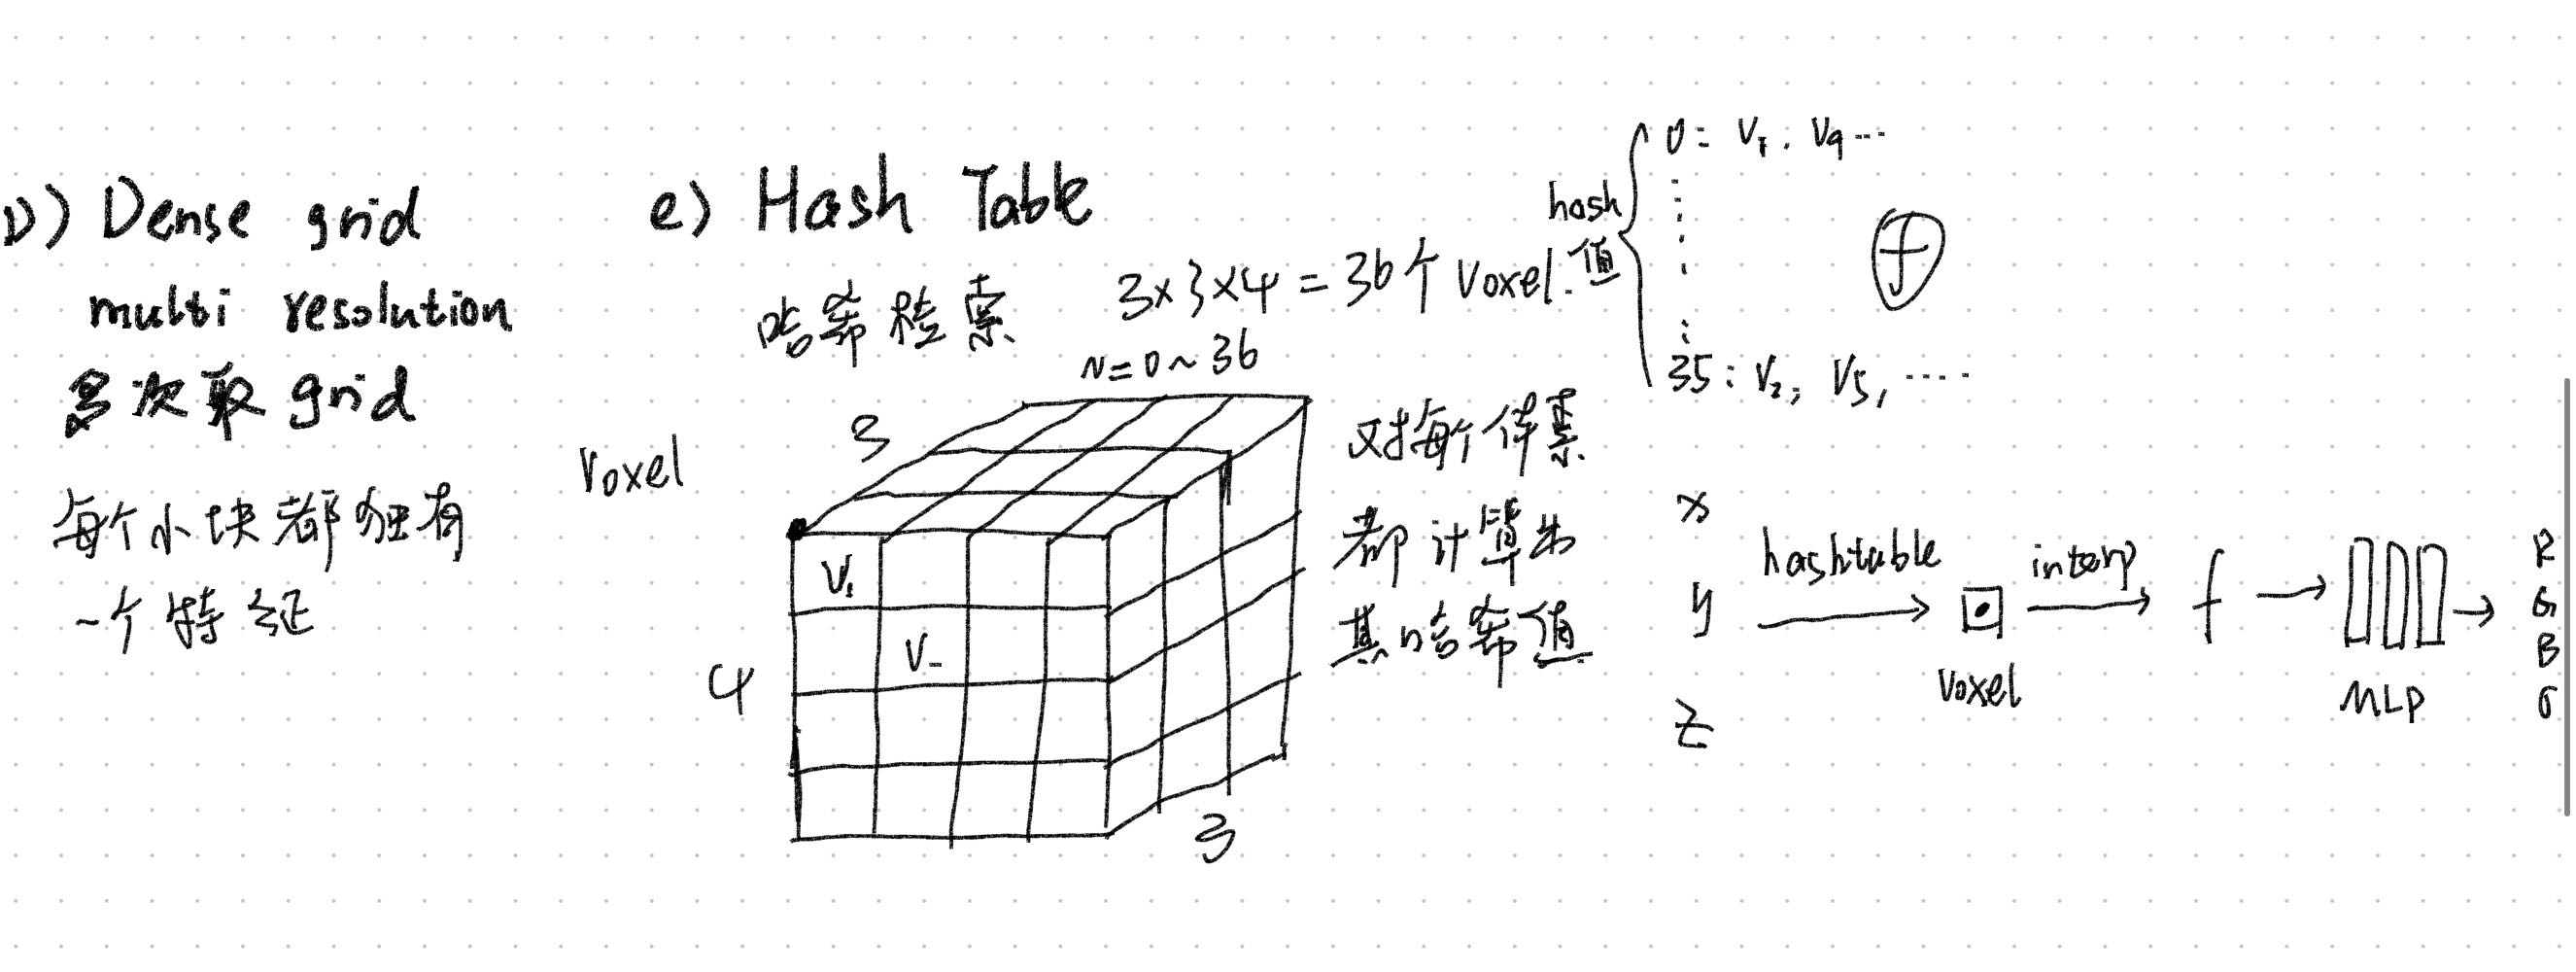 D) Dense grid
multi resolution
多次取 grid
每个小块都独有
一个特征
e) Hash Table
哈希检索
3x3x4 = 36个 Voxel.
N=0~36
Voxel
3
4
3
V₁
V-
对每个体素
都计算出
其哈希值
hash
值
0: V₁, V9 ...
f
35: V₂, V5, ....
x
y
z
hashtable
Voxel
interp
f
MLP
R
G
B
σ